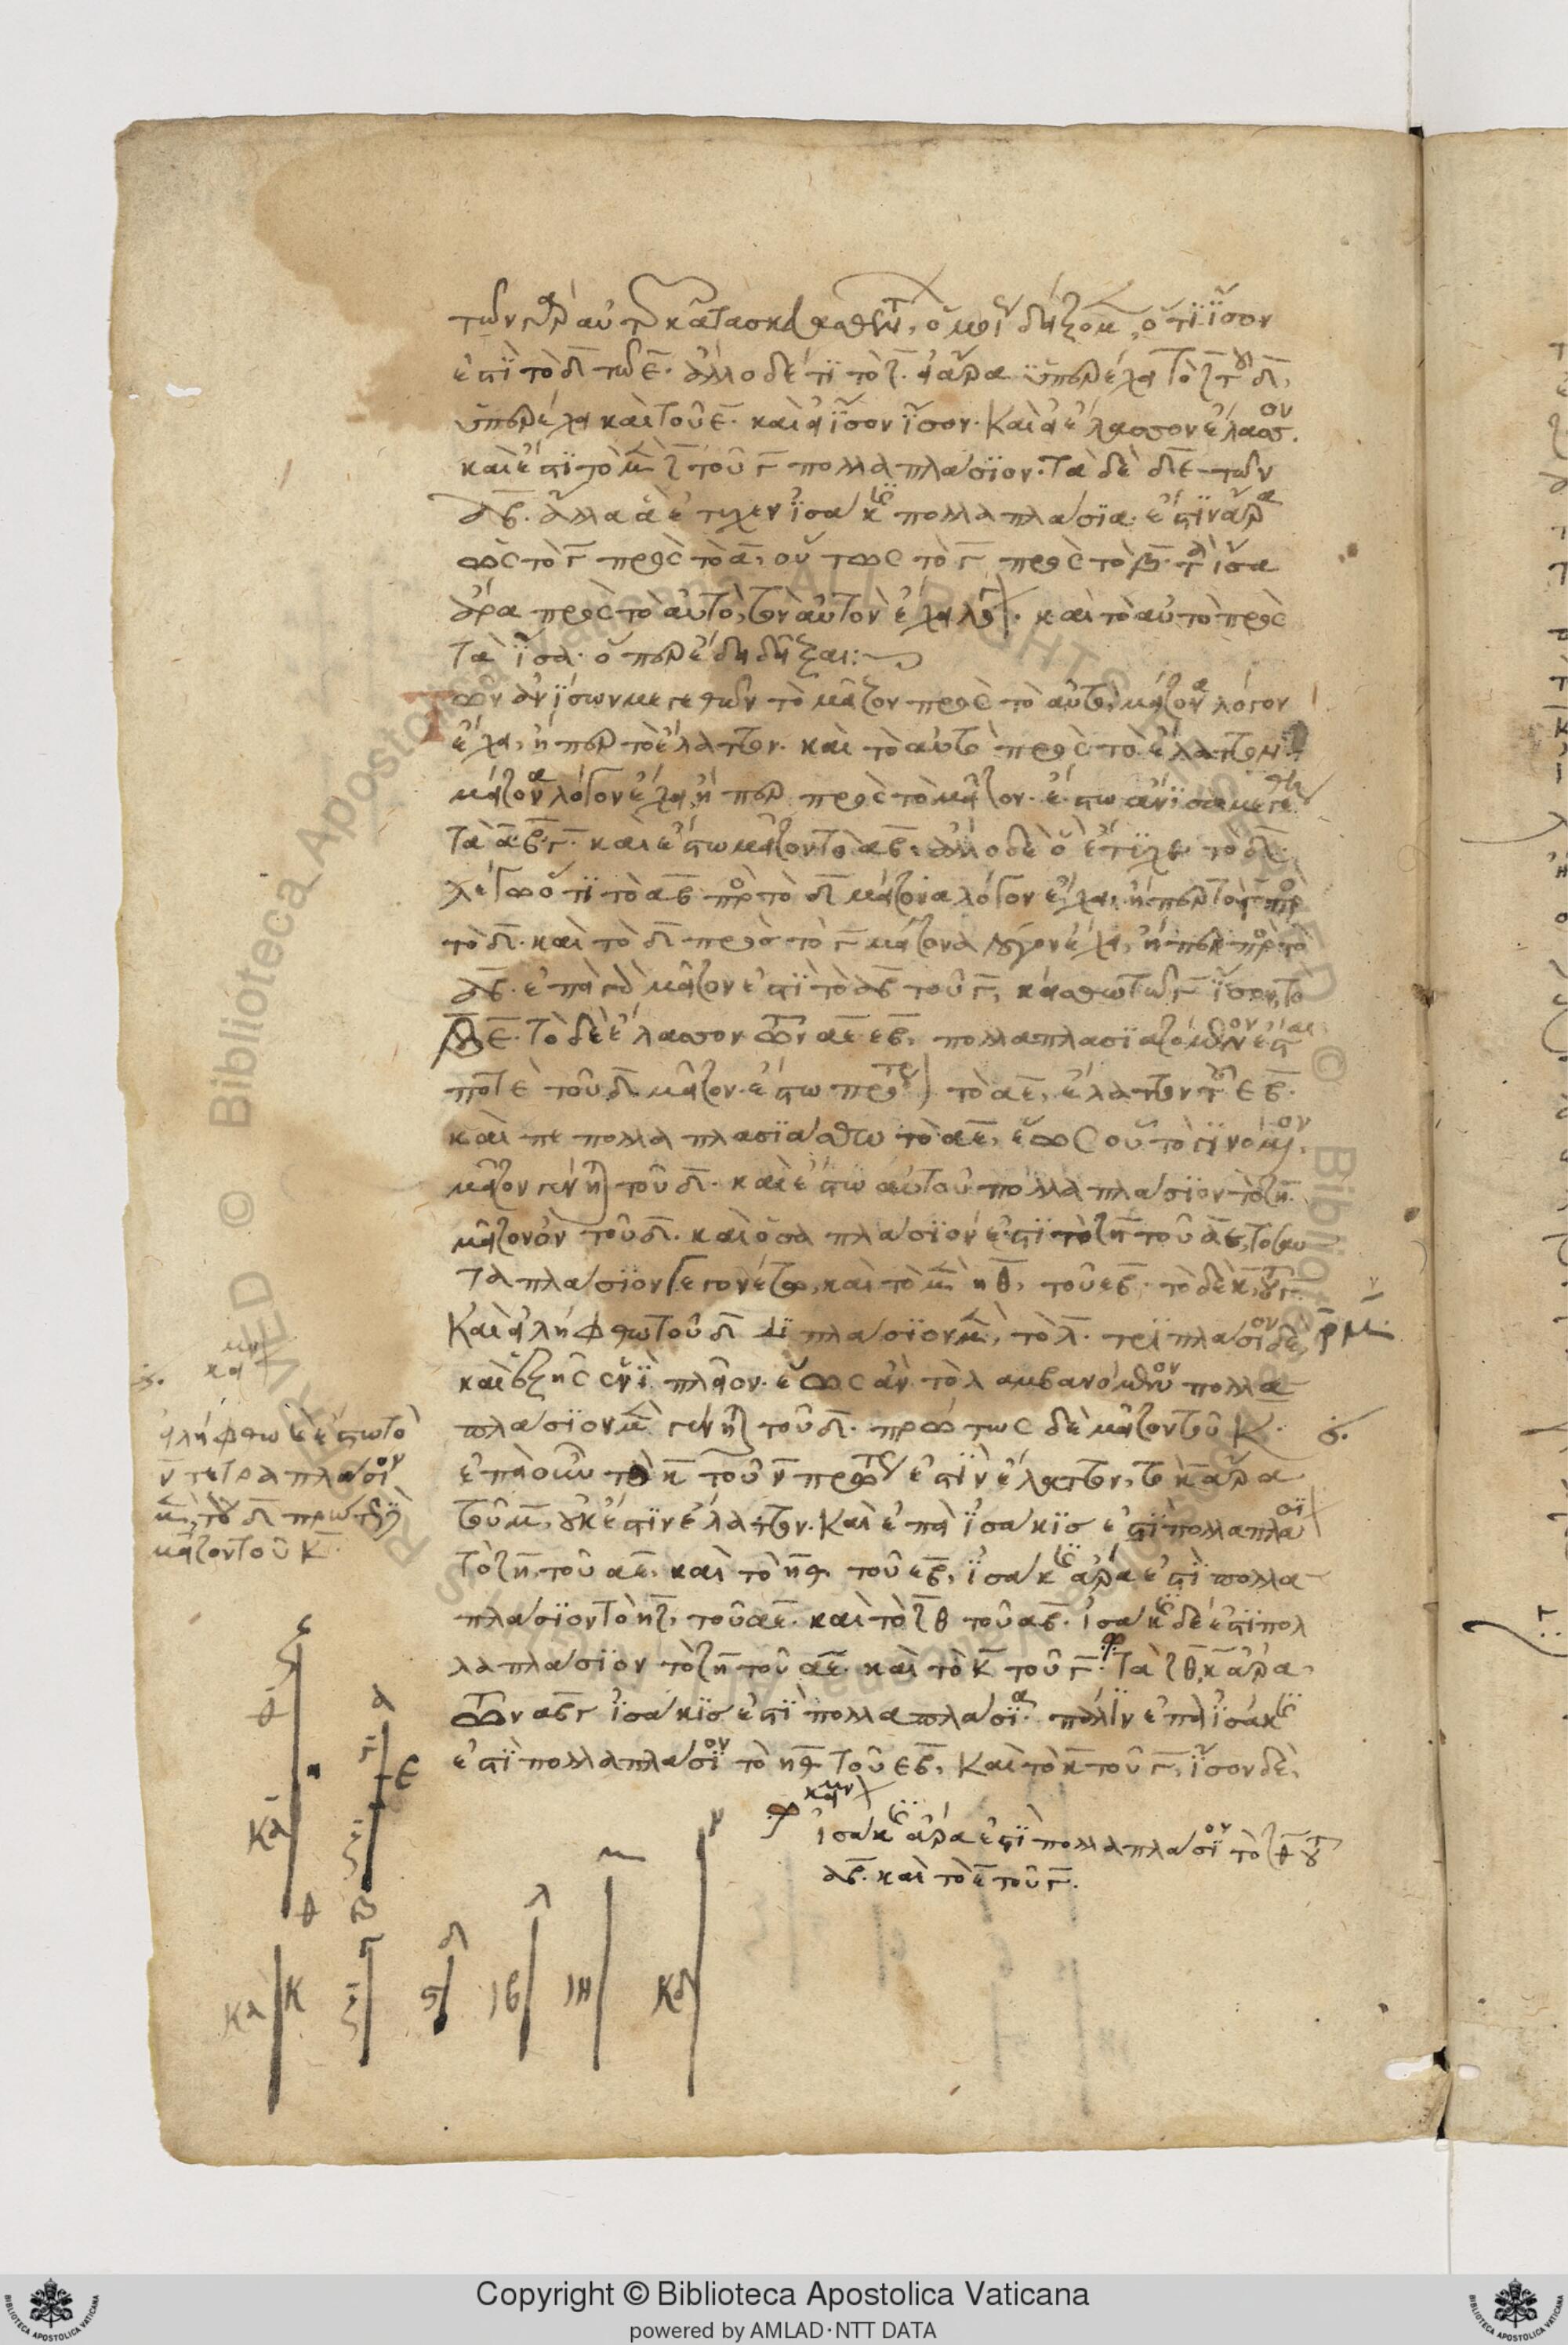 τῶν γὰρ αὐτῶν κατασκευασθέντων, ὁμοίως δείξομεν, ὅτι ἴσον
ἐστὶ τὸ δ̄ τῶ ε̄. ἄλλο δέ τι τὸ ζ̄. εἰ ἄρα ὑπερέχει τὸ ζ̄ τοῦ δ̄,
ὑπερέχει καὶ τοῦ ε̄. καὶ εἰ ἴσον ἴσον. καὶ εἰ ἔλασσον ἔλασσον.
καὶ ἐστὶ τὸ μὲν ζ̄ τοῦ γ̄ πολλαπλάσιον. τὰ δὲ δ̄ε̄ τῶν
ᾱβ̄. ἄλλα ἃ ἔτυχεν ἰσάκις πολλαπλάσια. ἔστιν ἄρα
ὡς τὸ γ̄ πρὸς τὸ ᾱ, οὕτως τὸ γ̄ πρὸς τὸ β̄. τὰ ἴσα
ἄρα πρὸς τὸ αὐτὸ, τὸν αὐτὸν ἔχει λόγον. καὶ τὸ αὐτὸ πρὸς
τὰ ἴσα. ὅπερ ἔδει δεῖξαι:
Τῶν ἀνίσων μεγεθῶν τὸ μεῖζον πρὸς τὸ αὐτὸ, μείζονα λόγον
ἔχει, ἤπερ τὸ ἔλαττον. καὶ τὸ αὐτὸ πρὸς τὸ ἔλαττον
μείζονα λόγον ἔχει, ἤπερ πρὸς τὸ μεῖζον. ἔστω ἄνισα μεγέθη
τὰ ᾱβ̄. γ̄. καὶ ἔστω μεῖζον τὸ ᾱβ̄. ἄλλο δὲ ὃ ἔτυχεν τὸ δ̄.
λέγω ὅτι τὸ ᾱβ̄ πρὸς τὸ δ̄ μείζονα λόγον ἔχει, ἤπερ τὸ γ̄ πρὸς
τὸ δ̄. καὶ τὸ δ̄ πρὸς τὸ γ̄ μείζονα λόγον ἔχει, ἤπερ πρὸς τὸ
ᾱβ̄. ἐπεὶ γὰρ μεῖζον ἐστὶ τὸ ᾱβ̄ τοῦ γ̄, κείσθω τῶ γ̄ ἴσον, τὸ
β̄ε̄. τὸ δὲ ἔλασσον τῶν ᾱε̄ ε̄β̄, πολλαπλασιαζόμενον ἔσται
ποτὲ τοῦ δ̄ μεῖζον. ἔστω πρότερον τὸ ᾱε̄, ἔλαττον τοῦ ε̄β̄.
καὶ πεπολλαπλασιάσθω τὸ ᾱε̄, ἕως οὗ τὸ γινόμενον
μεῖζον γένηται τοῦ δ̄. καὶ ἔστω αὐτοῦ πολλαπλάσιον τὸ ζ̄η̄.
μεῖζον ὂν τοῦ δ̄. καὶ ὁσαπλάσιον ἐστὶ τὸ ζ̄η̄ τοῦ ᾱε̄, τοσαυ
ταπλάσιον γεγονέτω, καὶ τὸ μὲν η̄θ̄, τοῦ ε̄β̄. τὸ δὲ κ̄, τοῦ γ̄.
καὶ εἰλήφθω τοῦ δ̄ διπλάσιον μὲν, τὸ λ̄. τριπλάσιον δὲ,
καὶ ἑξῆς ἑνὶ πλεῖον. ἕως ἂν τὸ λαμβανόμενον πολλα
πλάσιον μὲν γένηται τοῦ δ̄. πρώτως δὲ μεῖζον τοῦ κ̄.
ἐπεὶ οὖν τὸ κ̄ τοῦ ν̄ πρώτως ἐστὶν ἔλαττον, τὸ κ̄ ἄρα
τοῦ μ̄, οὐκ ἔστιν ἔλαττον. καὶ ἐπεὶ ἰσάκις ἐστὶ πολλαπλάσιον
τὸ ζ̄η̄, τοῦ ᾱε̄, καὶ τὸ η̄θ̄ τοῦ ε̄β̄, ἰσάκις ἄρα ἐστὶ πολλα
πλάσιον τὸ η̄ζ̄, τοῦ ᾱε̄. καὶ τὸ ζ̄θ̄ τοῦ ᾱβ̄. ἰσάκις δέ ἐστι πολ
λαπλάσιον τὸ ζ̄η̄ τοῦ ᾱε̄. καὶ τὸ κ̄ τοῦ γ̄. τὰ ζ̄θ̄, κ̄ ἄρα,
τῶν ᾱβ̄γ̄ ἰσάκις ἐστὶ πολλαπλάσια. πάλιν ἐπεὶ ἰσάκις
ἐστὶ πολλαπλάσιον τὸ η̄θ̄ τοῦ ε̄β̄, καὶ τὸ κ̄ τοῦ γ̄, ἴσον δὲ,
ἰσάκις ἄρα ἐστὶ πολλαπλάσιον τὸ ζ̄θ̄ τοῦ
ᾱβ̄. καὶ τὸ κ̄ τοῦ γ̄.
εἰλήφθω καὶ ἔστω τὸ
ν̄ τετραπλάσιον
μὲν τοῦ δ̄ πρώτως δὲ
μεῖζον τοῦ κ̄.
Copyright © Biblioteca Apostolica Vaticana
powered by AMLAD·NTT DATA